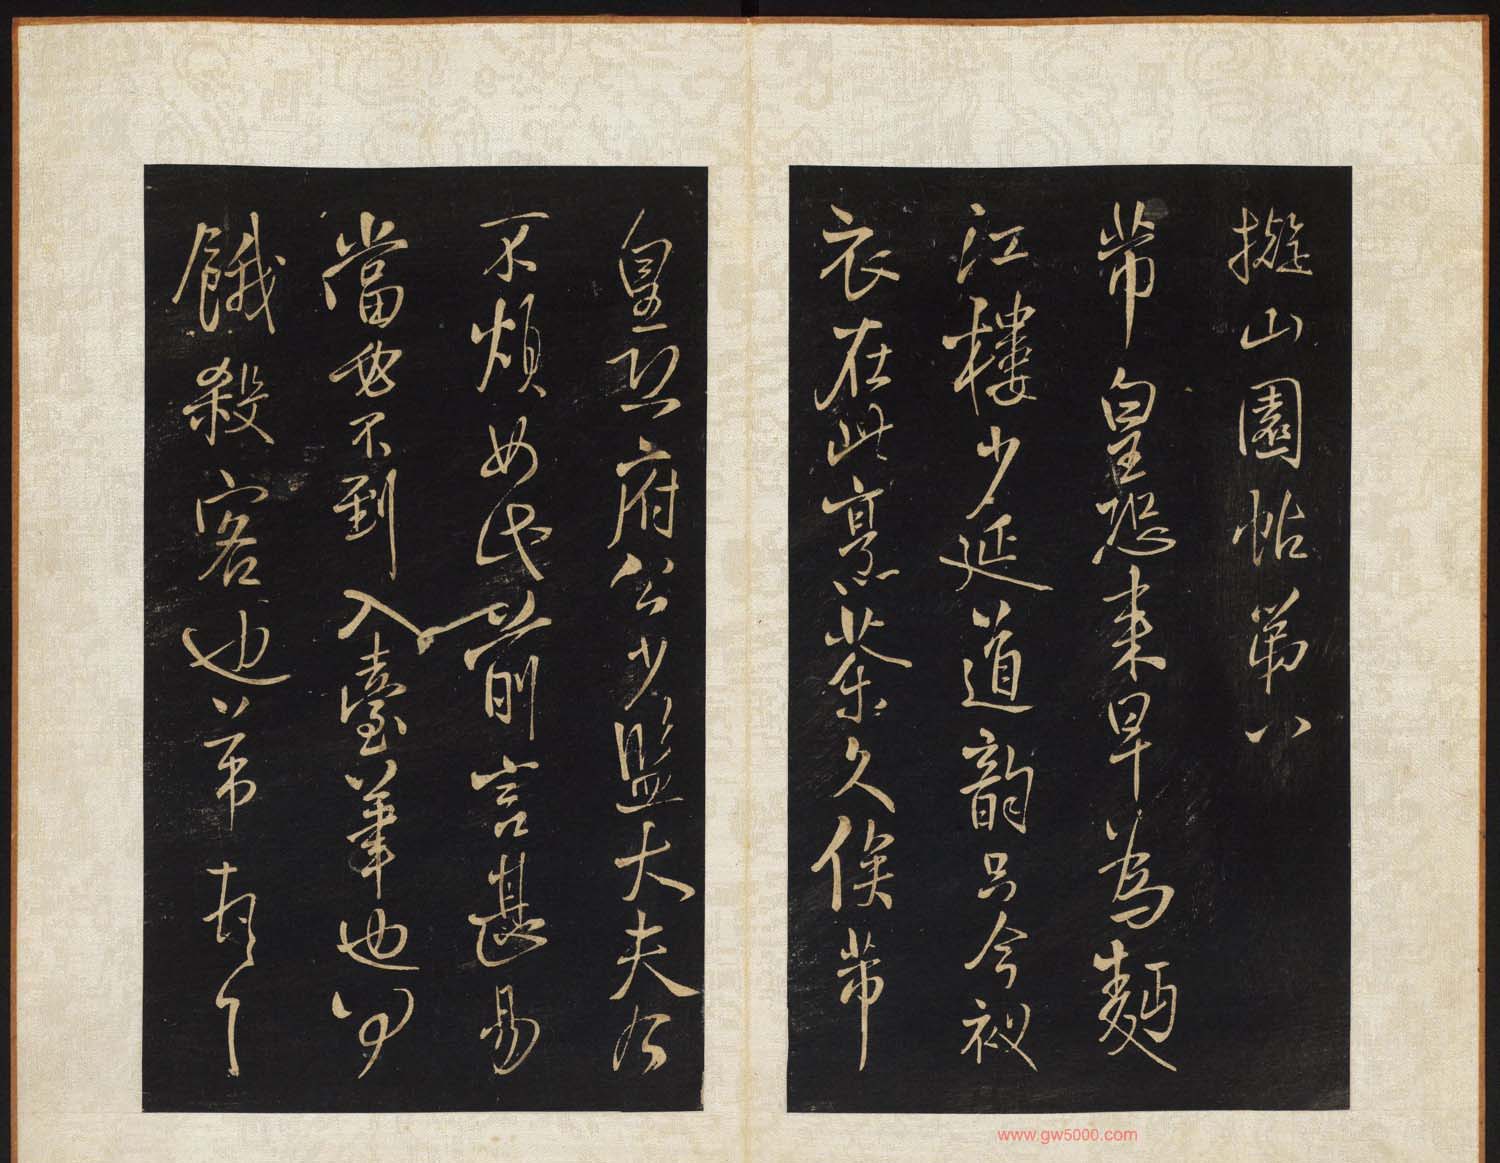 擬山園帖第八
芾皇恐來早為麵
江樓少延道韻只今衩
衣在此烹茶久俟芾
皇恐府公少監大夫公
不煩女氏前言甚易
當必不到入臺革也
餓殺客也芾頓首
www.gw5000.com